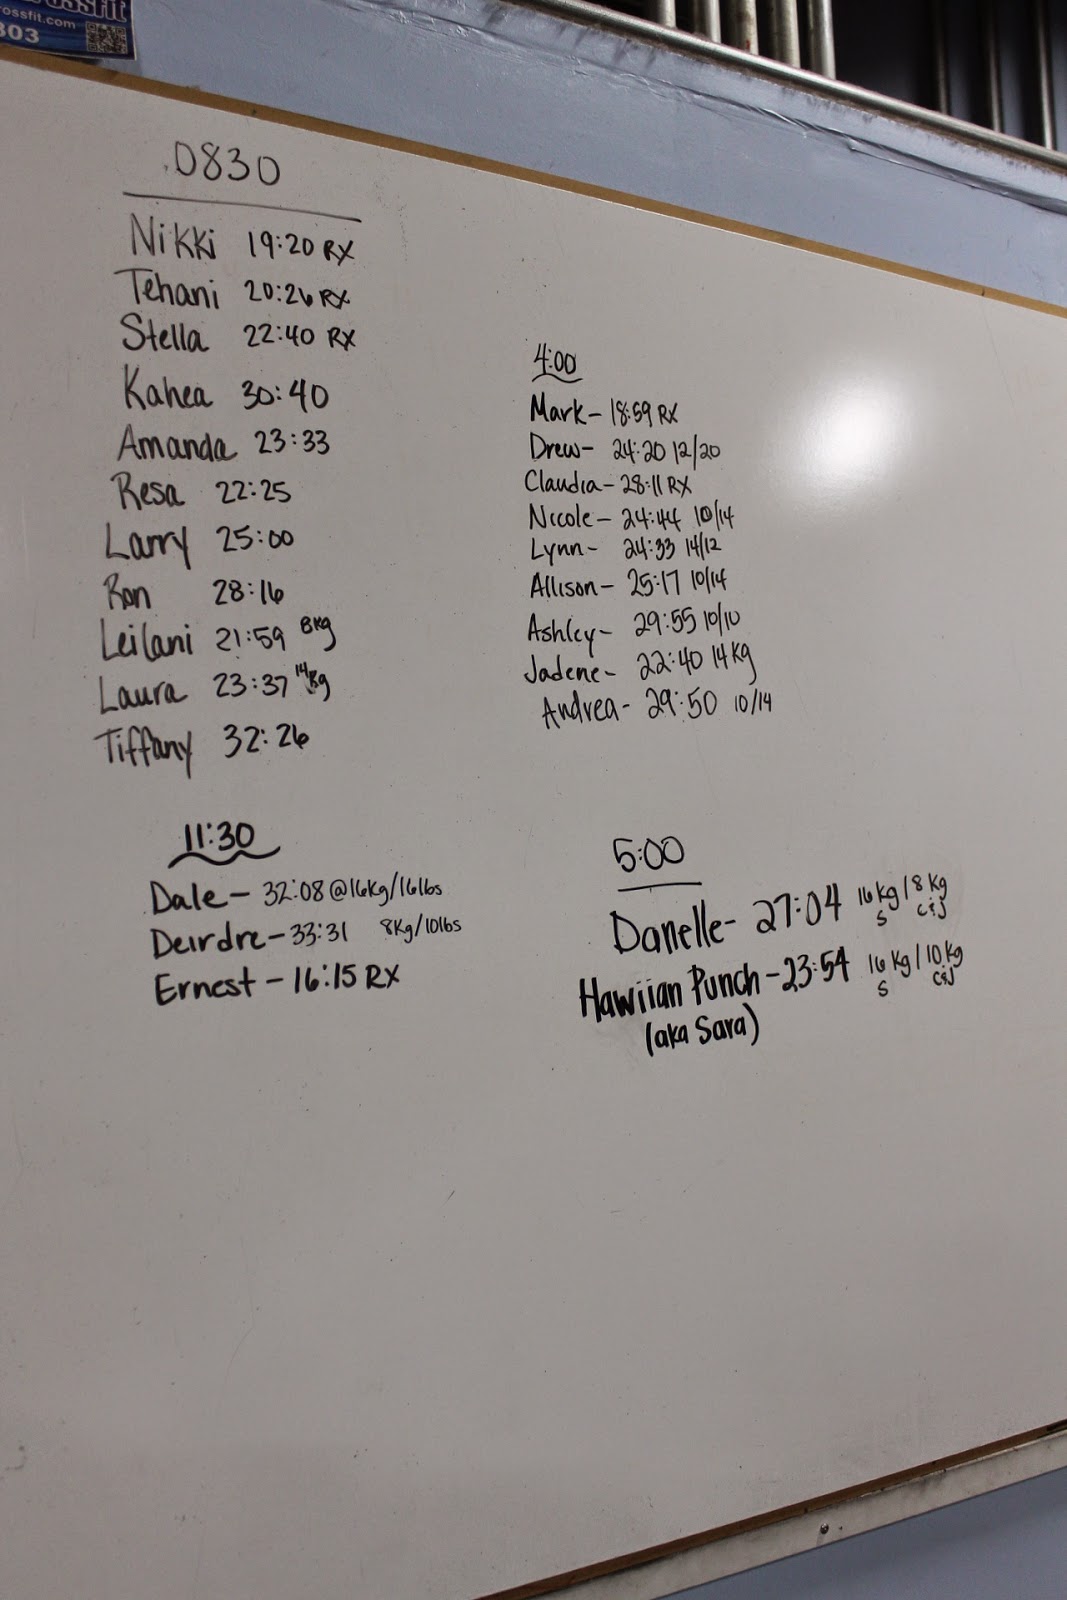 ossfit.com
303
0830
Nikki 19:20 RX
Tehani 20:26 RX
Stella 22:40 RX
Kahea 30:40
Amanda 23:33
Resa 22:25
Larry 25:00
Ron 28:16
Leilani 21:59 8kg
Laura 23:37 14kg
Tiffany 32:26
11:30
Dale - 32:08 @16kg/16lbs
Deirdre - 33:31 8kg/10lbs
Ernest - 16:15 RX
4:00
Mark - 18:59 RX
Drew - 24:20 12/20
Claudia - 28:11 RX
Nicole - 24:44 10/14
Lynn - 24:33 14/12
Allison - 25:17 10/14
Ashley - 29:55 10/10
Jadene - 22:40 14kg
Andrea - 29:50 10/14
5:00
Danelle - 27:04 16kg/8kg
S C&J
Hawiian Punch - 23:54 16kg/10kg
S C&J
(aka Sara)